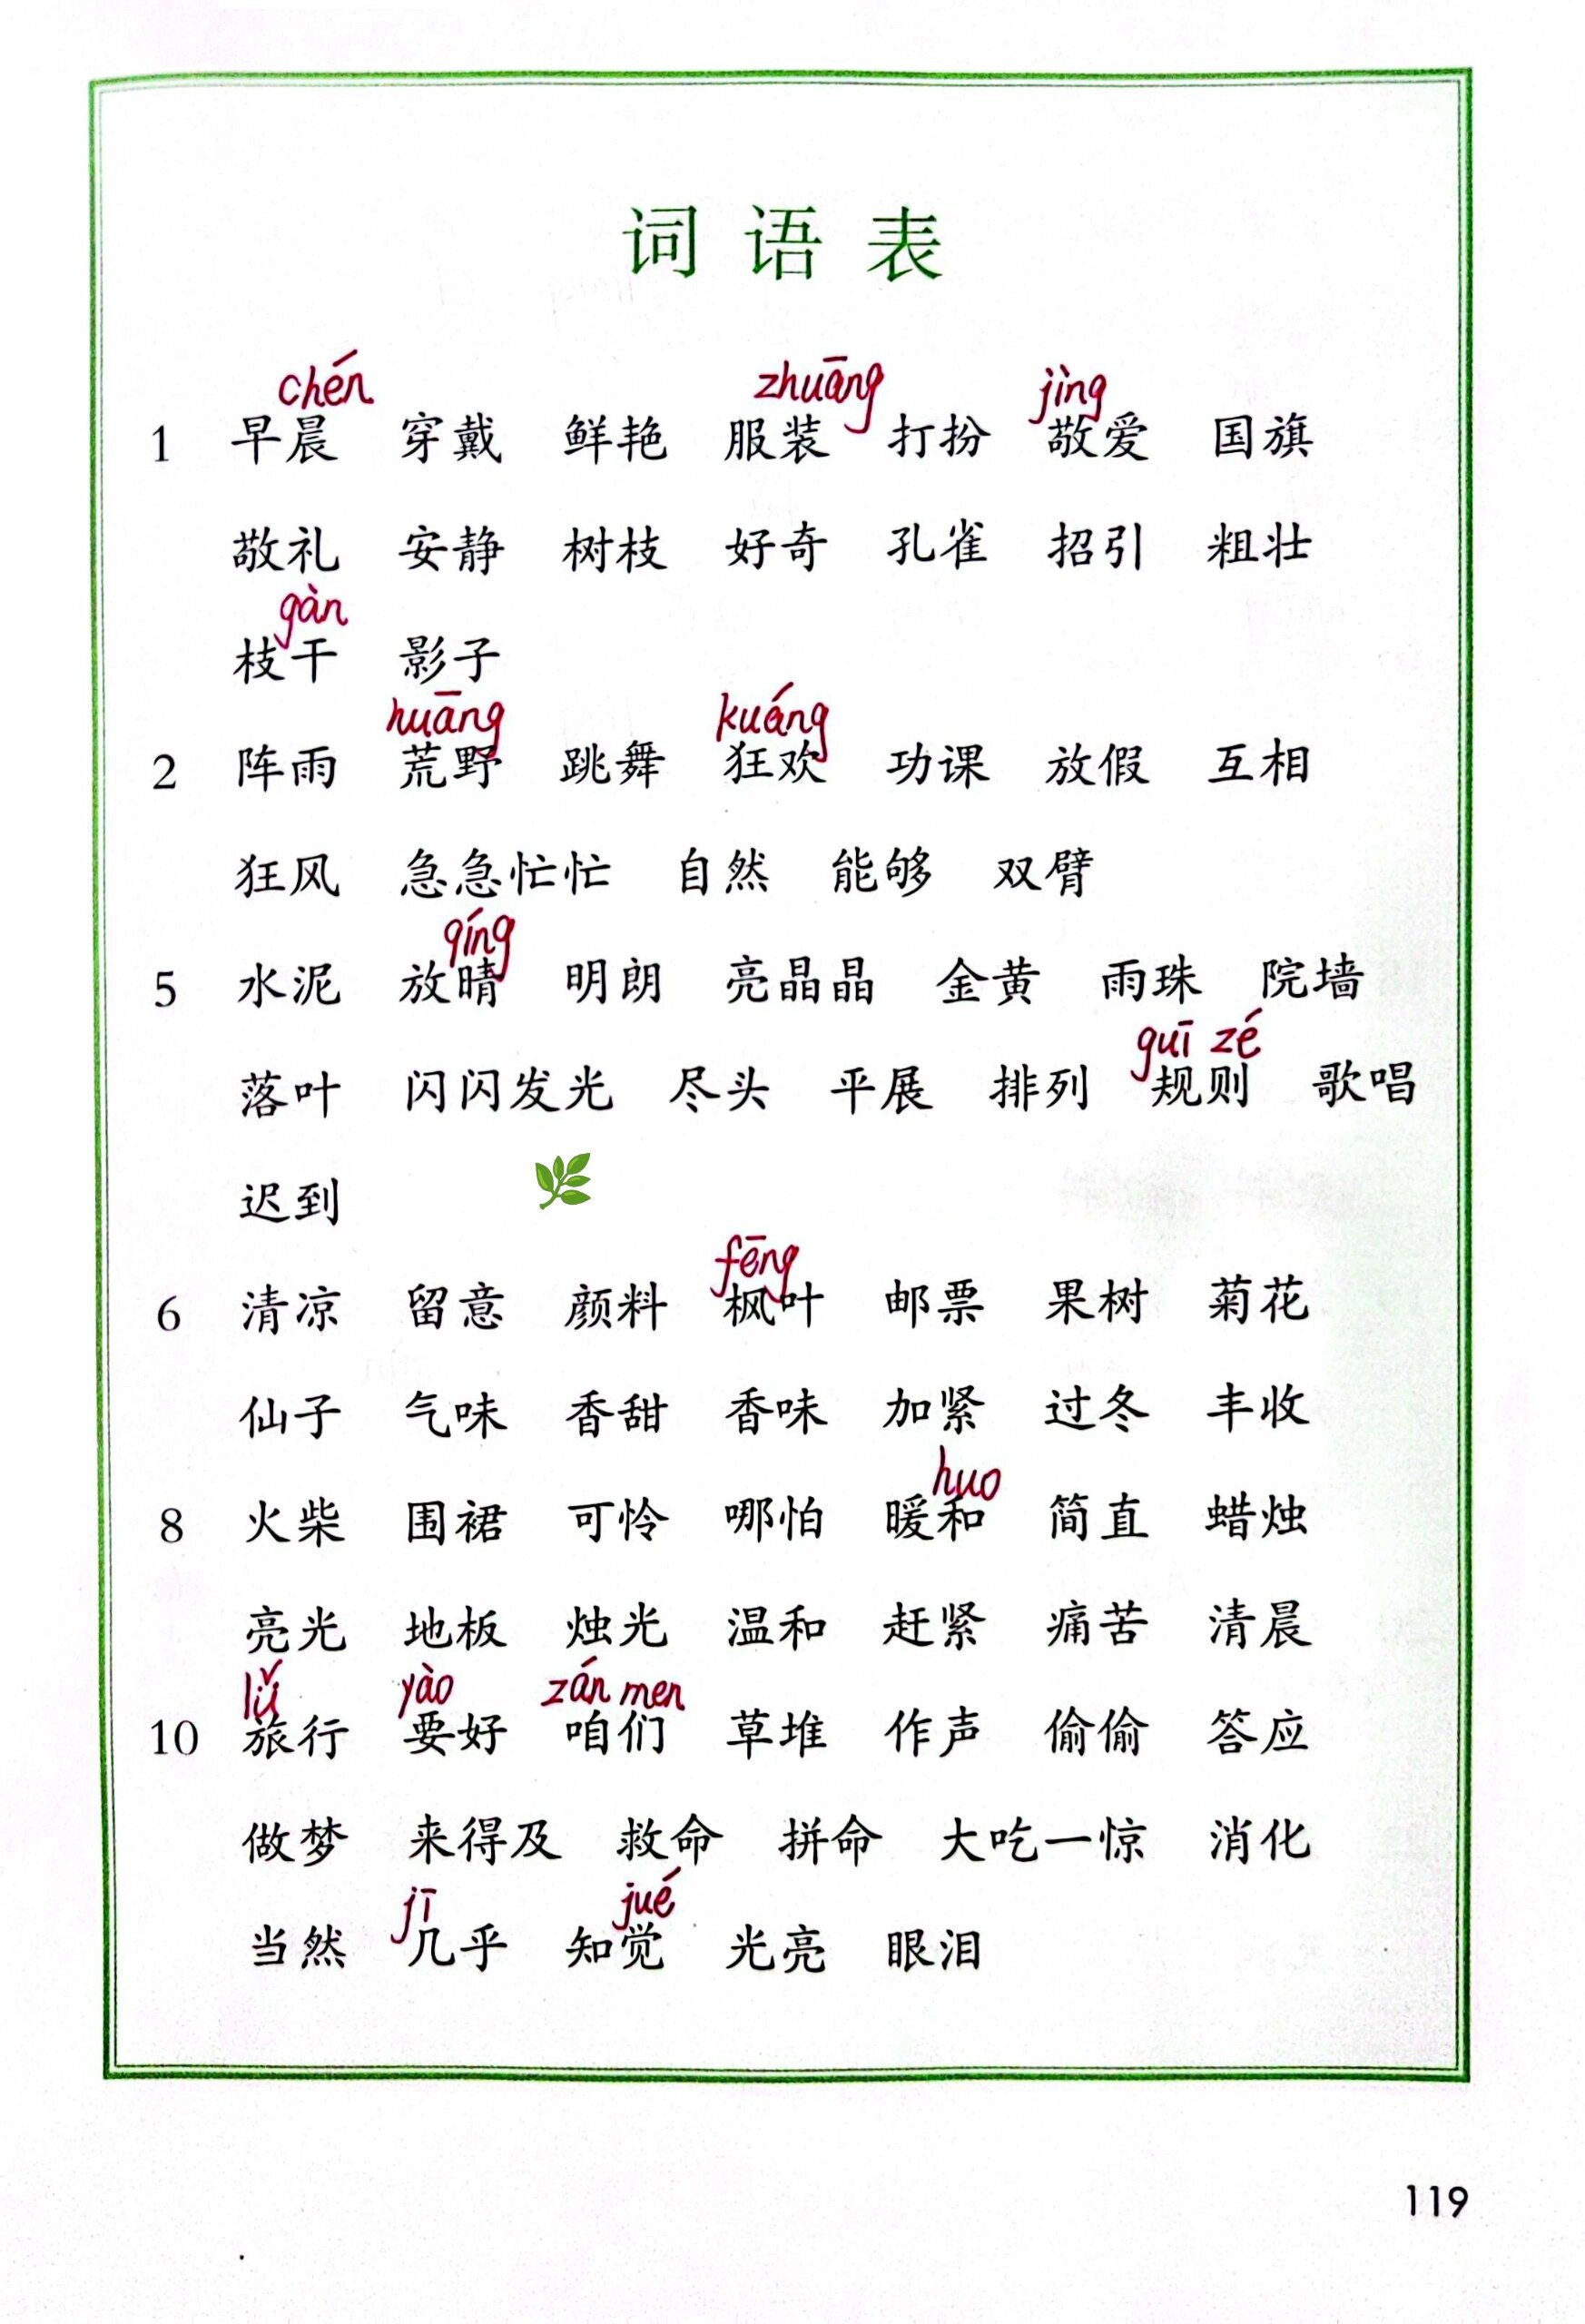 词语表
chén zhuāng jìng
1 早晨 穿戴 鲜艳 服装 打扮 敬爱 国旗
敬礼 安静 树枝 好奇 孔雀 招引 粗壮
gàn
枝干 影子
huāng kuáng
2 阵雨 荒野 跳舞 狂欢 功课 放假 互相
狂风 急急忙忙 自然 能够 双臂
qíng
5 水泥 放晴 明朗 亮晶晶 金黄 雨珠 院墙
guī zé
落叶 闪闪发光 尽头 平展 排列 规则 歌唱
迟到
fēng
6 清凉 留意 颜料 枫叶 邮票 果树 菊花
仙子 气味 香甜 香味 加紧 过冬 丰收
huo
8 火柴 围裙 可怜 哪怕 暖和 简直 蜡烛
亮光 地板 烛光 温和 赶紧 痛苦 清晨
lǚ yào zán men
10 旅行 要好 咱们 草堆 作声 偷偷 答应
做梦 来得及 救命 拼命 大吃一惊 消化
jī jué
当然 几乎 知觉 光亮 眼泪
119